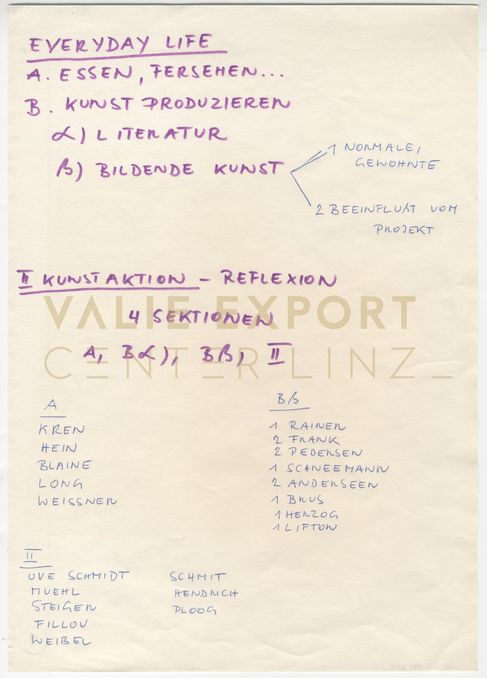 EVERYDAY LIFE
A. ESSEN, FERSEHEN...
B. KUNST PRODUZIEREN
α) LITERATUR
β) BILDENDE KUNST
1 NORMALE,
GEWOHNTE
2 BEEINFLUßT VOM
PROJEKT
II KUNSTAKTION – REFLEXION
VALIE EXPORT
4 SEKTIONEN
A, Bα), Bß, II
CENTER LINZ_
A
KREN
HEIN
BLAINE
LONG
WEISSNER
Bß
1 RAINER
2 FRANK
2 PEDERSEN
1 SCHNEEMANN
2 ANDERSEEN
1 BRUS
1 HERZOG
1 LIFTON
II
UVE SCHMIDT
MUEHL
STEIGER
FILLOU
WEIBEL
SCHMIT
HENDRICH
PLOOG